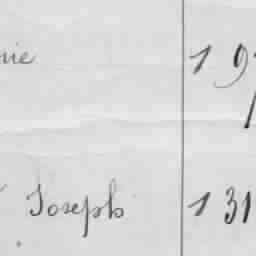 nie 1 9
Joseph 1 31